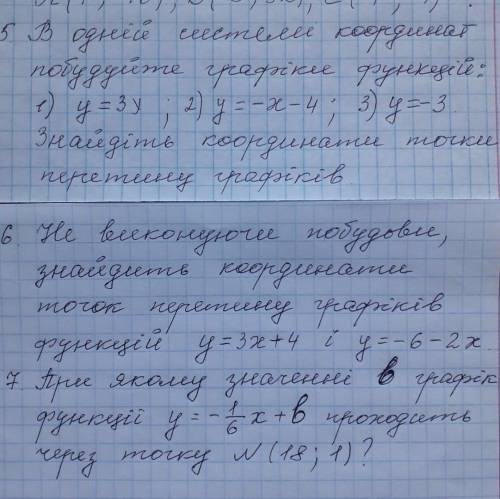 5 В одній системі координат
побудуйте графіки функцій:
1) y = 3x ; 2) y = -x - 4 ; 3) y = -3
Знайдіть координати точки
перетину графіків
6 Не виконуючи побудови,
знайдить координати
точок перетину графіків
функцій y = 3x + 4 і y = -6 - 2x
7 При якому значенні b графік
функції y = -1/6 x + b проходить
через точку N (18 ; 1) ?